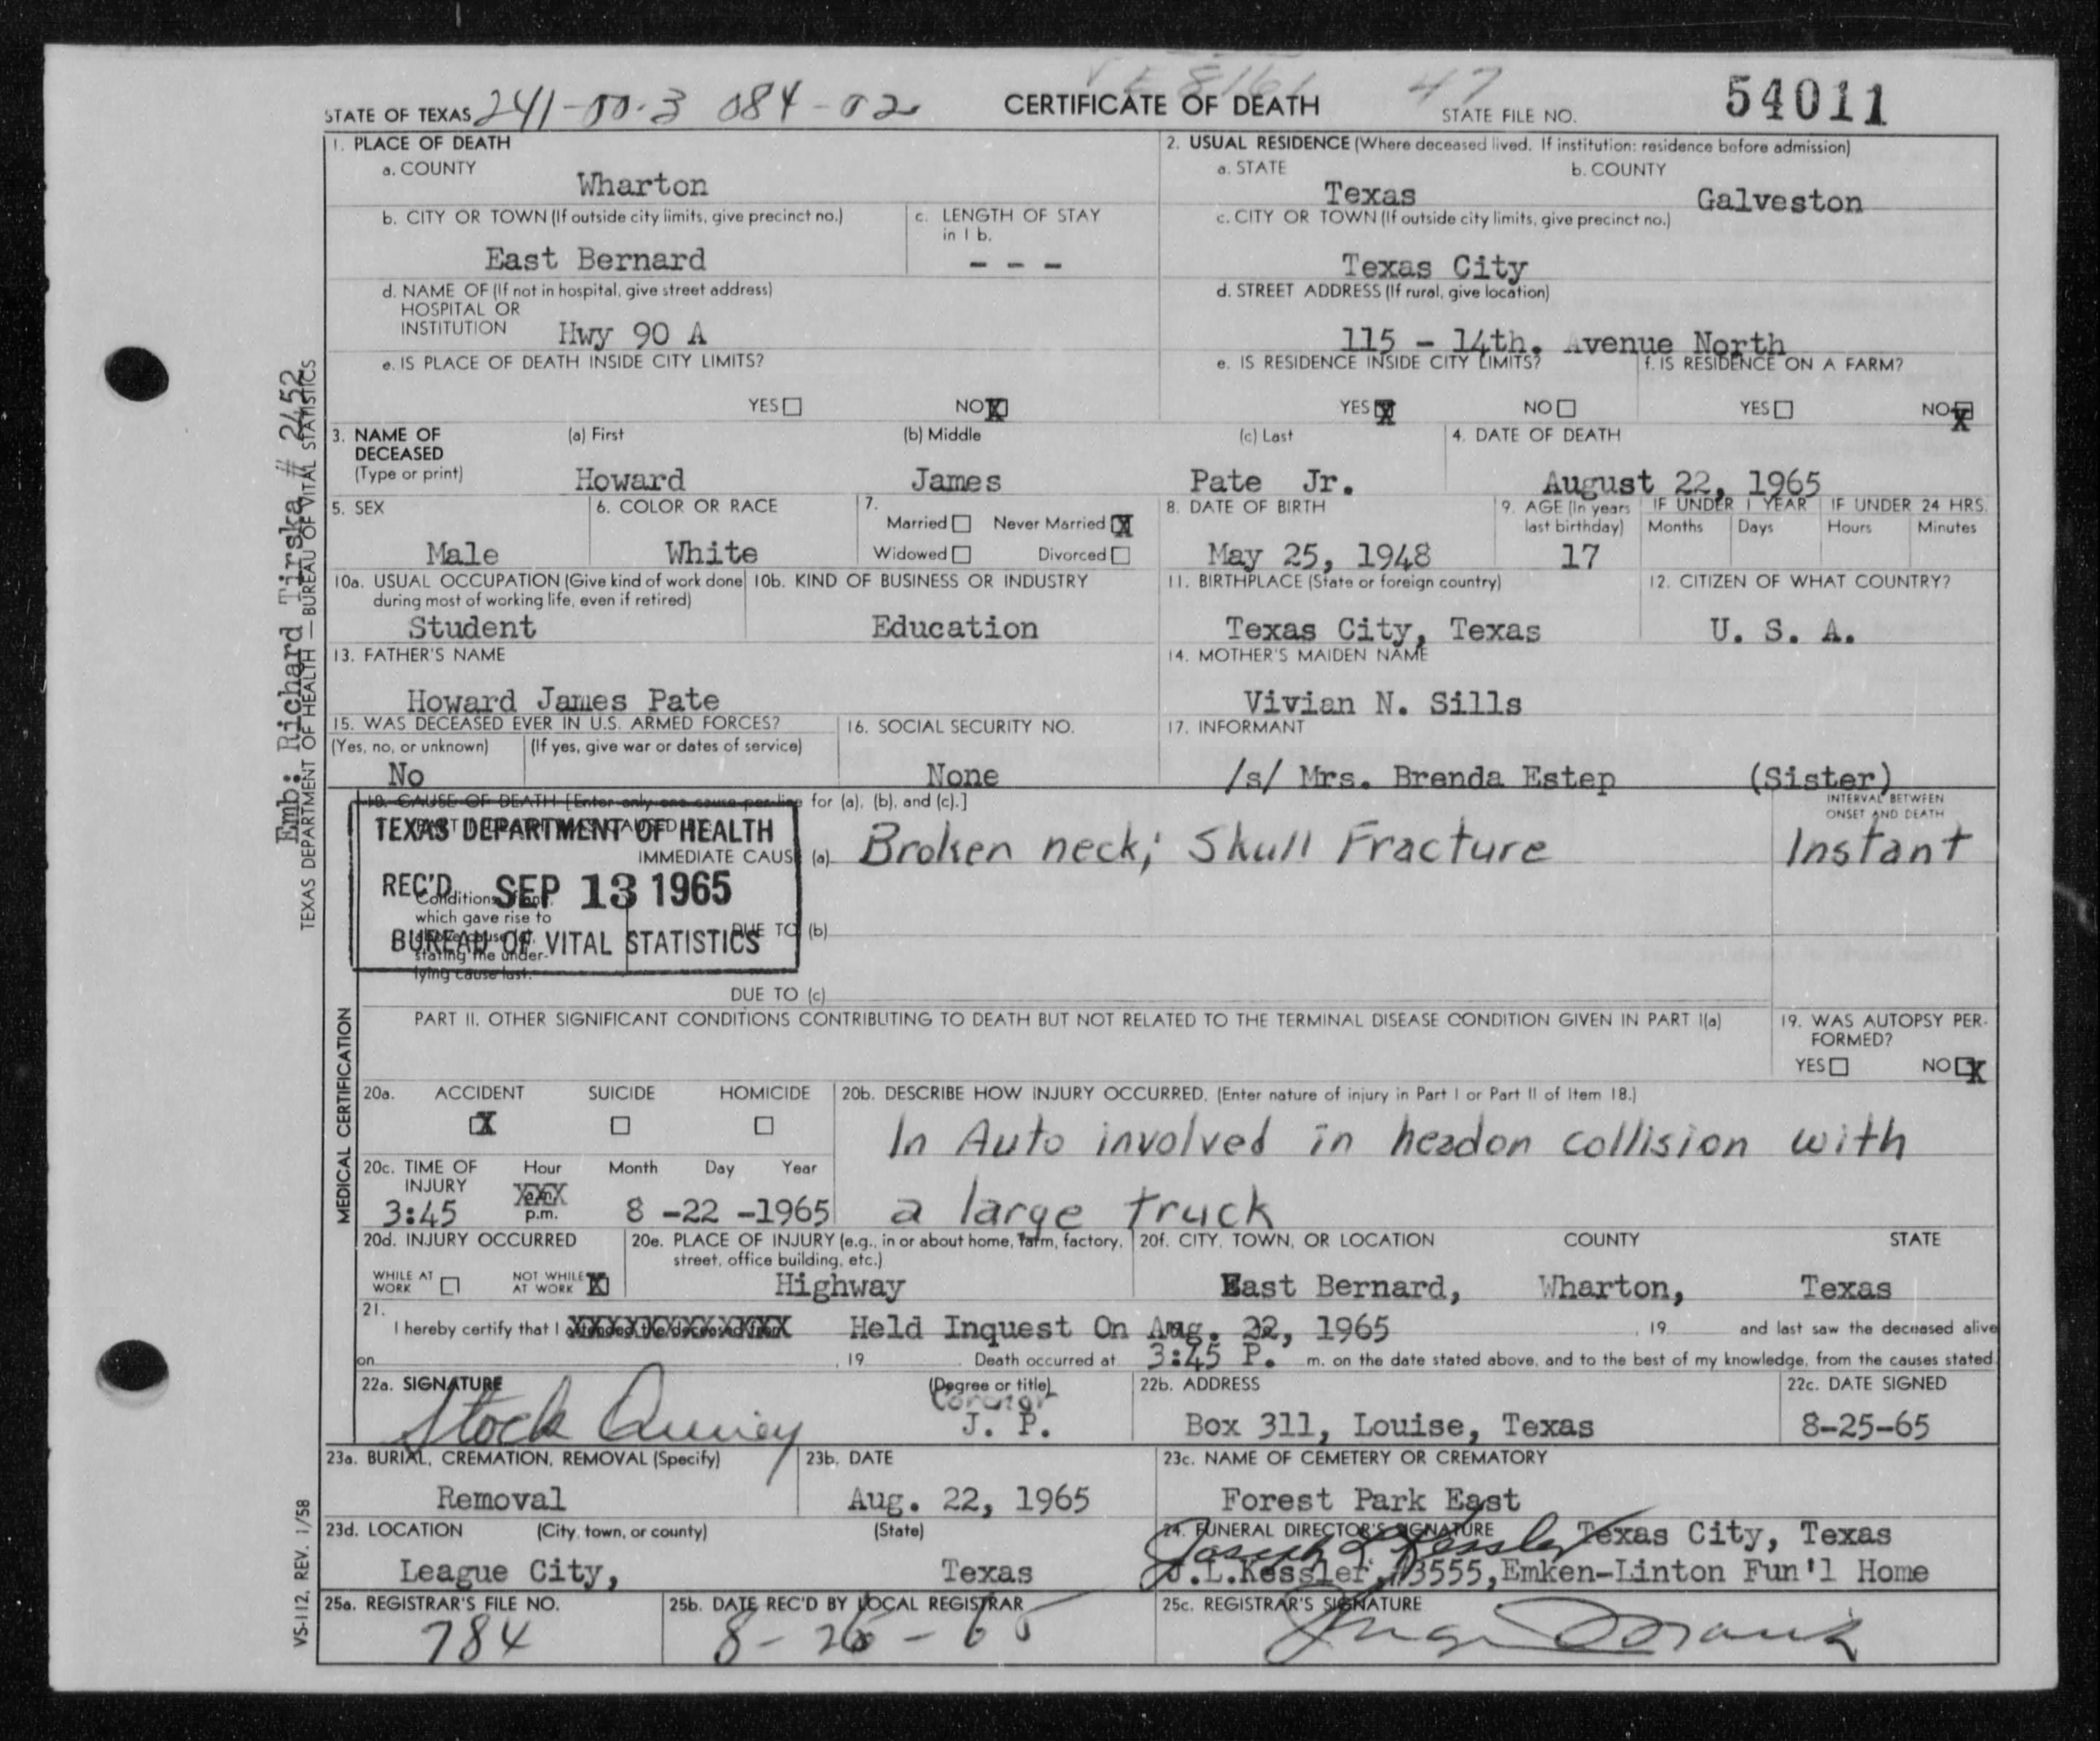 STATE OF TEXAS 241-00-3 084-02 CERTIFICATE OF DEATH 47 STATE FILE NO. 54011
1. PLACE OF DEATH
a. COUNTY
Wharton
b. CITY OR TOWN (If outside city limits, give precinct no.)
East Bernard
c. LENGTH OF STAY in 1 b.
- - -
d. NAME OF (If not in hospital, give street address)
HOSPITAL OR
INSTITUTION Hwy 90 A
e. IS PLACE OF DEATH INSIDE CITY LIMITS?
YES☐ NO☒
2. USUAL RESIDENCE (Where deceased lived. If institution: residence before admission)
a. STATE b. COUNTY
Texas Galveston
c. CITY OR TOWN (If outside city limits, give precinct no.)
Texas City
d. STREET ADDRESS (If rural, give location)
115 - 14th. Avenue North
e. IS RESIDENCE INSIDE CITY LIMITS? f. IS RESIDENCE ON A FARM?
YES☒ NO☐ YES☐ NO☒
3. NAME OF DECEASED (Type or print)
(a) First (b) Middle (c) Last
Howard James Pate Jr.
4. DATE OF DEATH
August 22, 1965
5. SEX
Male
6. COLOR OR RACE
White
7.
Married☐ Never Married☒
Widowed☐ Divorced☐
8. DATE OF BIRTH
May 25, 1948
9. AGE (In years last birthday)
17
IF UNDER 1 YEAR IF UNDER 24 HRS.
Months Days Hours Minutes
10a. USUAL OCCUPATION (Give kind of work done during most of working life, even if retired)
Student
10b. KIND OF BUSINESS OR INDUSTRY
Education
11. BIRTHPLACE (State or foreign country)
Texas City, Texas
12. CITIZEN OF WHAT COUNTRY?
U. S. A.
13. FATHER'S NAME
Howard James Pate
14. MOTHER'S MAIDEN NAME
Vivian N. Sills
15. WAS DECEASED EVER IN U.S. ARMED FORCES?
(Yes, no, or unknown) (If yes, give war or dates of service)
No
16. SOCIAL SECURITY NO.
None
17. INFORMANT
/s/ Mrs. Brenda Estep (Sister)
18. CAUSE OF DEATH [Enter only one cause per line for (a), (b), and (c).]
INTERVAL BETWEEN ONSET AND DEATH
TEXAS DEPARTMENT OF HEALTH
REC'D SEP 13 1965
BUREAU OF VITAL STATISTICS
IMMEDIATE CAUSE (a) Broken neck; Skull Fracture Instant
Conditions
which gave rise to
stating the under-
lying cause last.
DUE TO (b)
DUE TO (c)
MEDICAL CERTIFICATION
PART II. OTHER SIGNIFICANT CONDITIONS CONTRIBUTING TO DEATH BUT NOT RELATED TO THE TERMINAL DISEASE CONDITION GIVEN IN PART I(a)
19. WAS AUTOPSY PERFORMED?
YES☐ NO☒
20a. ACCIDENT SUICIDE HOMICIDE
☒ ☐ ☐
20b. DESCRIBE HOW INJURY OCCURRED. (Enter nature of injury in Part I or Part II of Item 18.)
In Auto involved in headon collision with
a large truck
20c. TIME OF INJURY Hour Month Day Year
3:45 p.m. 8 -22 -1965
20d. INJURY OCCURRED
WHILE AT WORK ☐ NOT WHILE AT WORK ☒
20e. PLACE OF INJURY (e.g., in or about home, farm, factory, street, office building, etc.)
Highway
20f. CITY, TOWN, OR LOCATION COUNTY STATE
East Bernard, Wharton, Texas
21.
I hereby certify that I attended the deceased from Held Inquest On Aug. 22, 1965 , 19 and last saw the deceased alive
on , 19 . Death occurred at 3:45 P. m. on the date stated above, and to the best of my knowledge, from the causes stated.
22a. SIGNATURE (Degree or title)
Coroner
J. P.
22b. ADDRESS
Box 311, Louise, Texas
22c. DATE SIGNED
8-25-65
23a. BURIAL, CREMATION, REMOVAL (Specify)
Removal
23b. DATE
Aug. 22, 1965
23c. NAME OF CEMETERY OR CREMATORY
Forest Park East
23d. LOCATION (City, town, or county) (State)
League City, Texas
24. FUNERAL DIRECTOR'S SIGNATURE
Joseph L Kessler Texas City, Texas
J.L.Kessler, #3555, Emken-Linton Fun'l Home
25a. REGISTRAR'S FILE NO.
784
25b. DATE REC'D BY LOCAL REGISTRAR
8-26-65
25c. REGISTRAR'S SIGNATURE
Emb: Richard Tirska # 2452
TEXAS DEPARTMENT OF HEALTH — BUREAU OF VITAL STATISTICS
VS-112, REV. 1/58